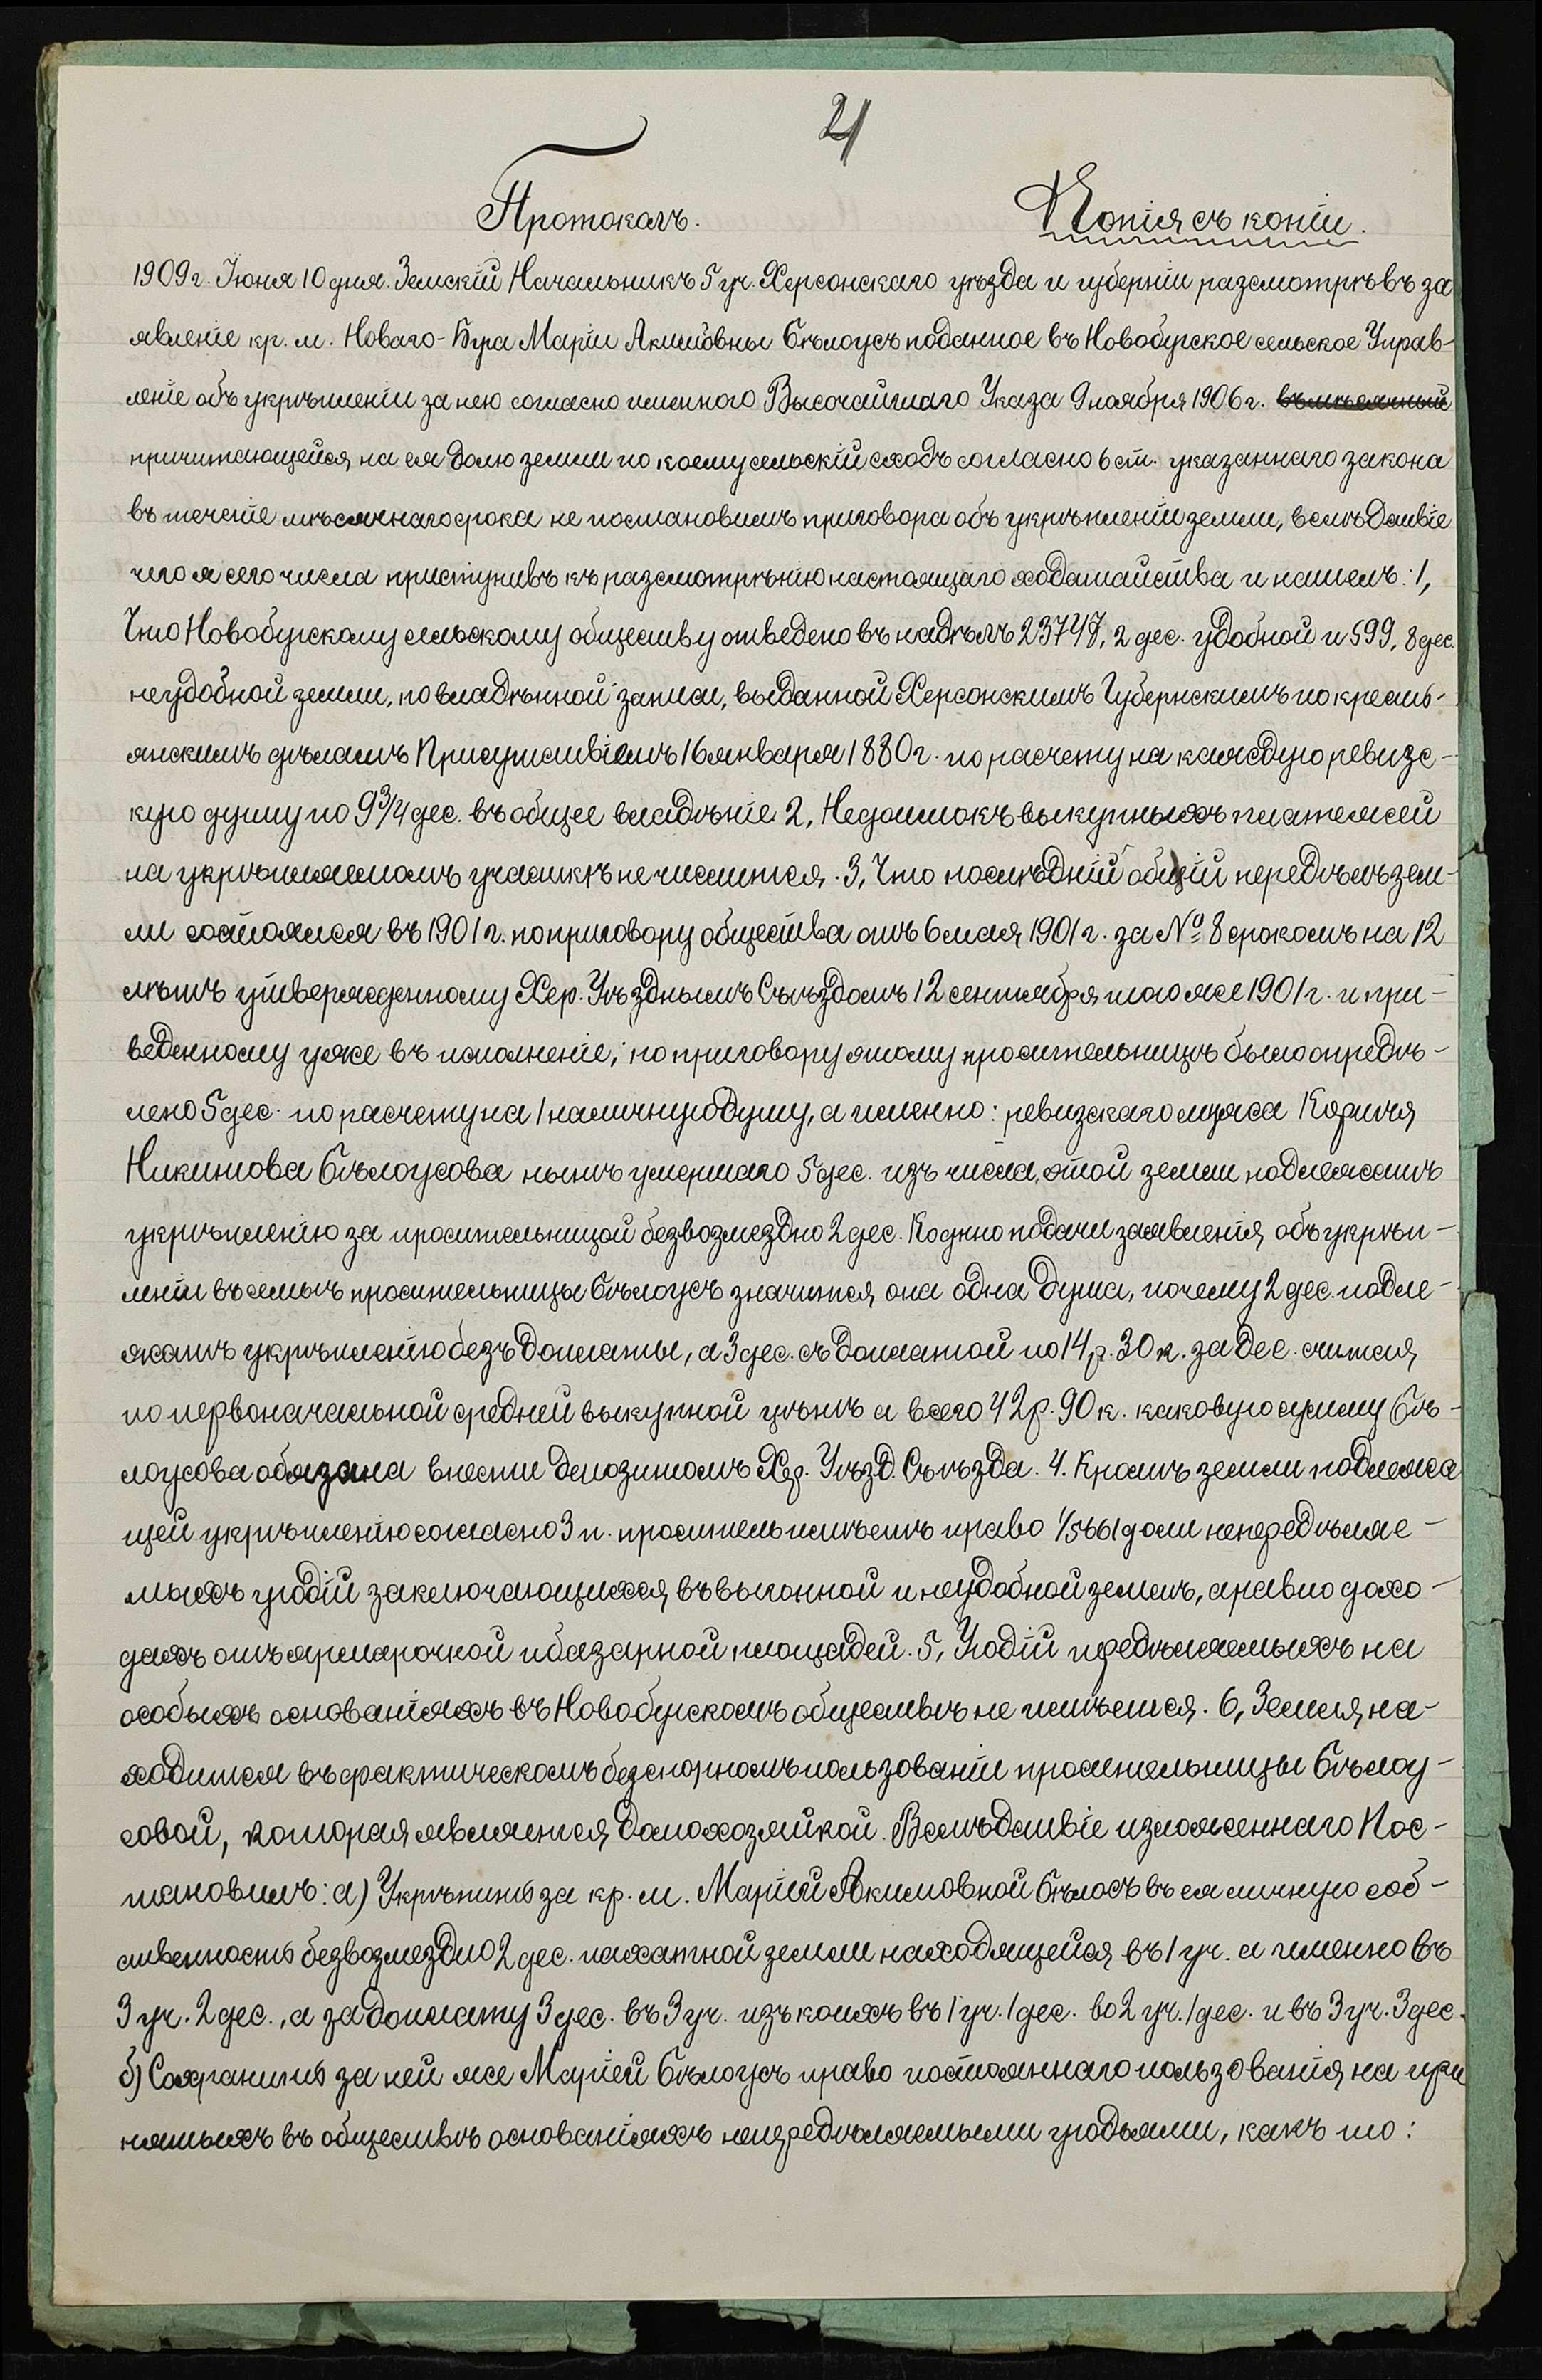 21
Протоколъ.
Копія съ копіи.
1909 г. Іюня 10 дня. Земскій Начальникъ 5 уч. Херсонскаго уѣзда и губерніи разсмотрѣвъ за
явленіе кр. м. Новаго-Буга Маріи Акимовны Бѣлоусъ поданное въ Новобугское сельское Управ-
леніе объ укрѣпленіи за нею согласно именного Высочайшаго Указа 9 ноября 1906 г.
причитающейся на ея долю земли по коему сельскій сходъ согласно 6 ст. указаннаго закона
въ теченіе мѣсячнаго срока не постановилъ приговора объ укрѣпленіи земли, вслѣдствіе
чего я сего числа приступивъ къ разсмотрѣнію настоящаго ходатайства и нашелъ: 1,
Что Новобугскому сельскому обществу отведено въ надѣлъ 23748, 2 дес. удобной и 599, 8 дес.
неудобной земли, по владѣнной записи, выданной Херсонскимъ Губернскимъ по кресть-
янскимъ дѣламъ Присутствіемъ 16 января 1880 г. по расчету на каждую ревизс-
кую душу по 9¾ дес. въ общее владѣніе. 2, Недоимокъ выкупныхъ платежей
на укрѣпляемомъ участкѣ не числится. 3, Что послѣдній общій передѣлъ зем-
ли состоялся въ 1901 г. по приговору общества отъ 6 мая 1901 г. за № 8 срокомъ на 12
лѣтъ утвержденному Хер. Уѣзднымъ Съѣздомъ 12 сентября того же 1901 г. и при-
веденному уже въ исполненіе; по приговору этому просительницѣ было опредѣ-
лено 5 дес. по расчету на 1 наличную душу, а именно: ревизскаго мужа
Никитова Бѣлоусова нынѣ умершаго 5 дес. изъ числа этой земли подлежатъ
укрѣпленію за просительницой безвозмездно 2 дес. Ко дню подачи заявленія объ укрѣп-
леніи въ семьѣ просительницы Бѣлоусъ значится она одна душа, почему 2 дес. подле-
жатъ укрѣпленію безъ доплаты, а 3 дес. съ доплатой по 14 р. 30 к. за дес. считая
по первоначальной средней выкупной цѣнѣ а всего 42 р. 90 к. каковую сумму Бѣ-
лоусова обязана внести депозитомъ Хер. Уѣзд. Съѣзда. 4. Кромѣ земли подлежа
щей укрѣпленію согласно 3 п. проситель имѣетъ право 1/5661 доли непередѣляе-
мыхъ угодій заключающихся въ выгонной и неудобной землѣ, а равно дохо-
дахъ отъ ярмарочной и базарной площадей. 5, Угодій предѣляемыхъ на
особыхъ основаніяхъ въ Новобугскомъ обществѣ не имѣется. 6, Земля на-
ходится въ фактическомъ безспорномъ пользованіи просительницы Бѣлоу-
совой, которая является домохозяйкой. Вслѣдствіе изложеннаго Пос-
тановилъ: а) Укрѣпить за кр. м. Маріей Акимовной Бѣлосъ въ ея личную соб-
ственность безвозмездно 2 дес. пахатной земли находящейся въ 1 уч. а именно въ
3 уч. 2 дес., а за доплату 3 дес. въ 3 уч. изъ коихъ въ 1 уч. 1 дес. во 2 уч. 1 дес. и въ 3 уч. 3 дес.
б) Сохранить за ней же Маріей Бѣлоусъ право постояннаго пользованія на при
нятыхъ въ обществѣ основаніяхъ непредѣляемыми угодьями, какъ то: